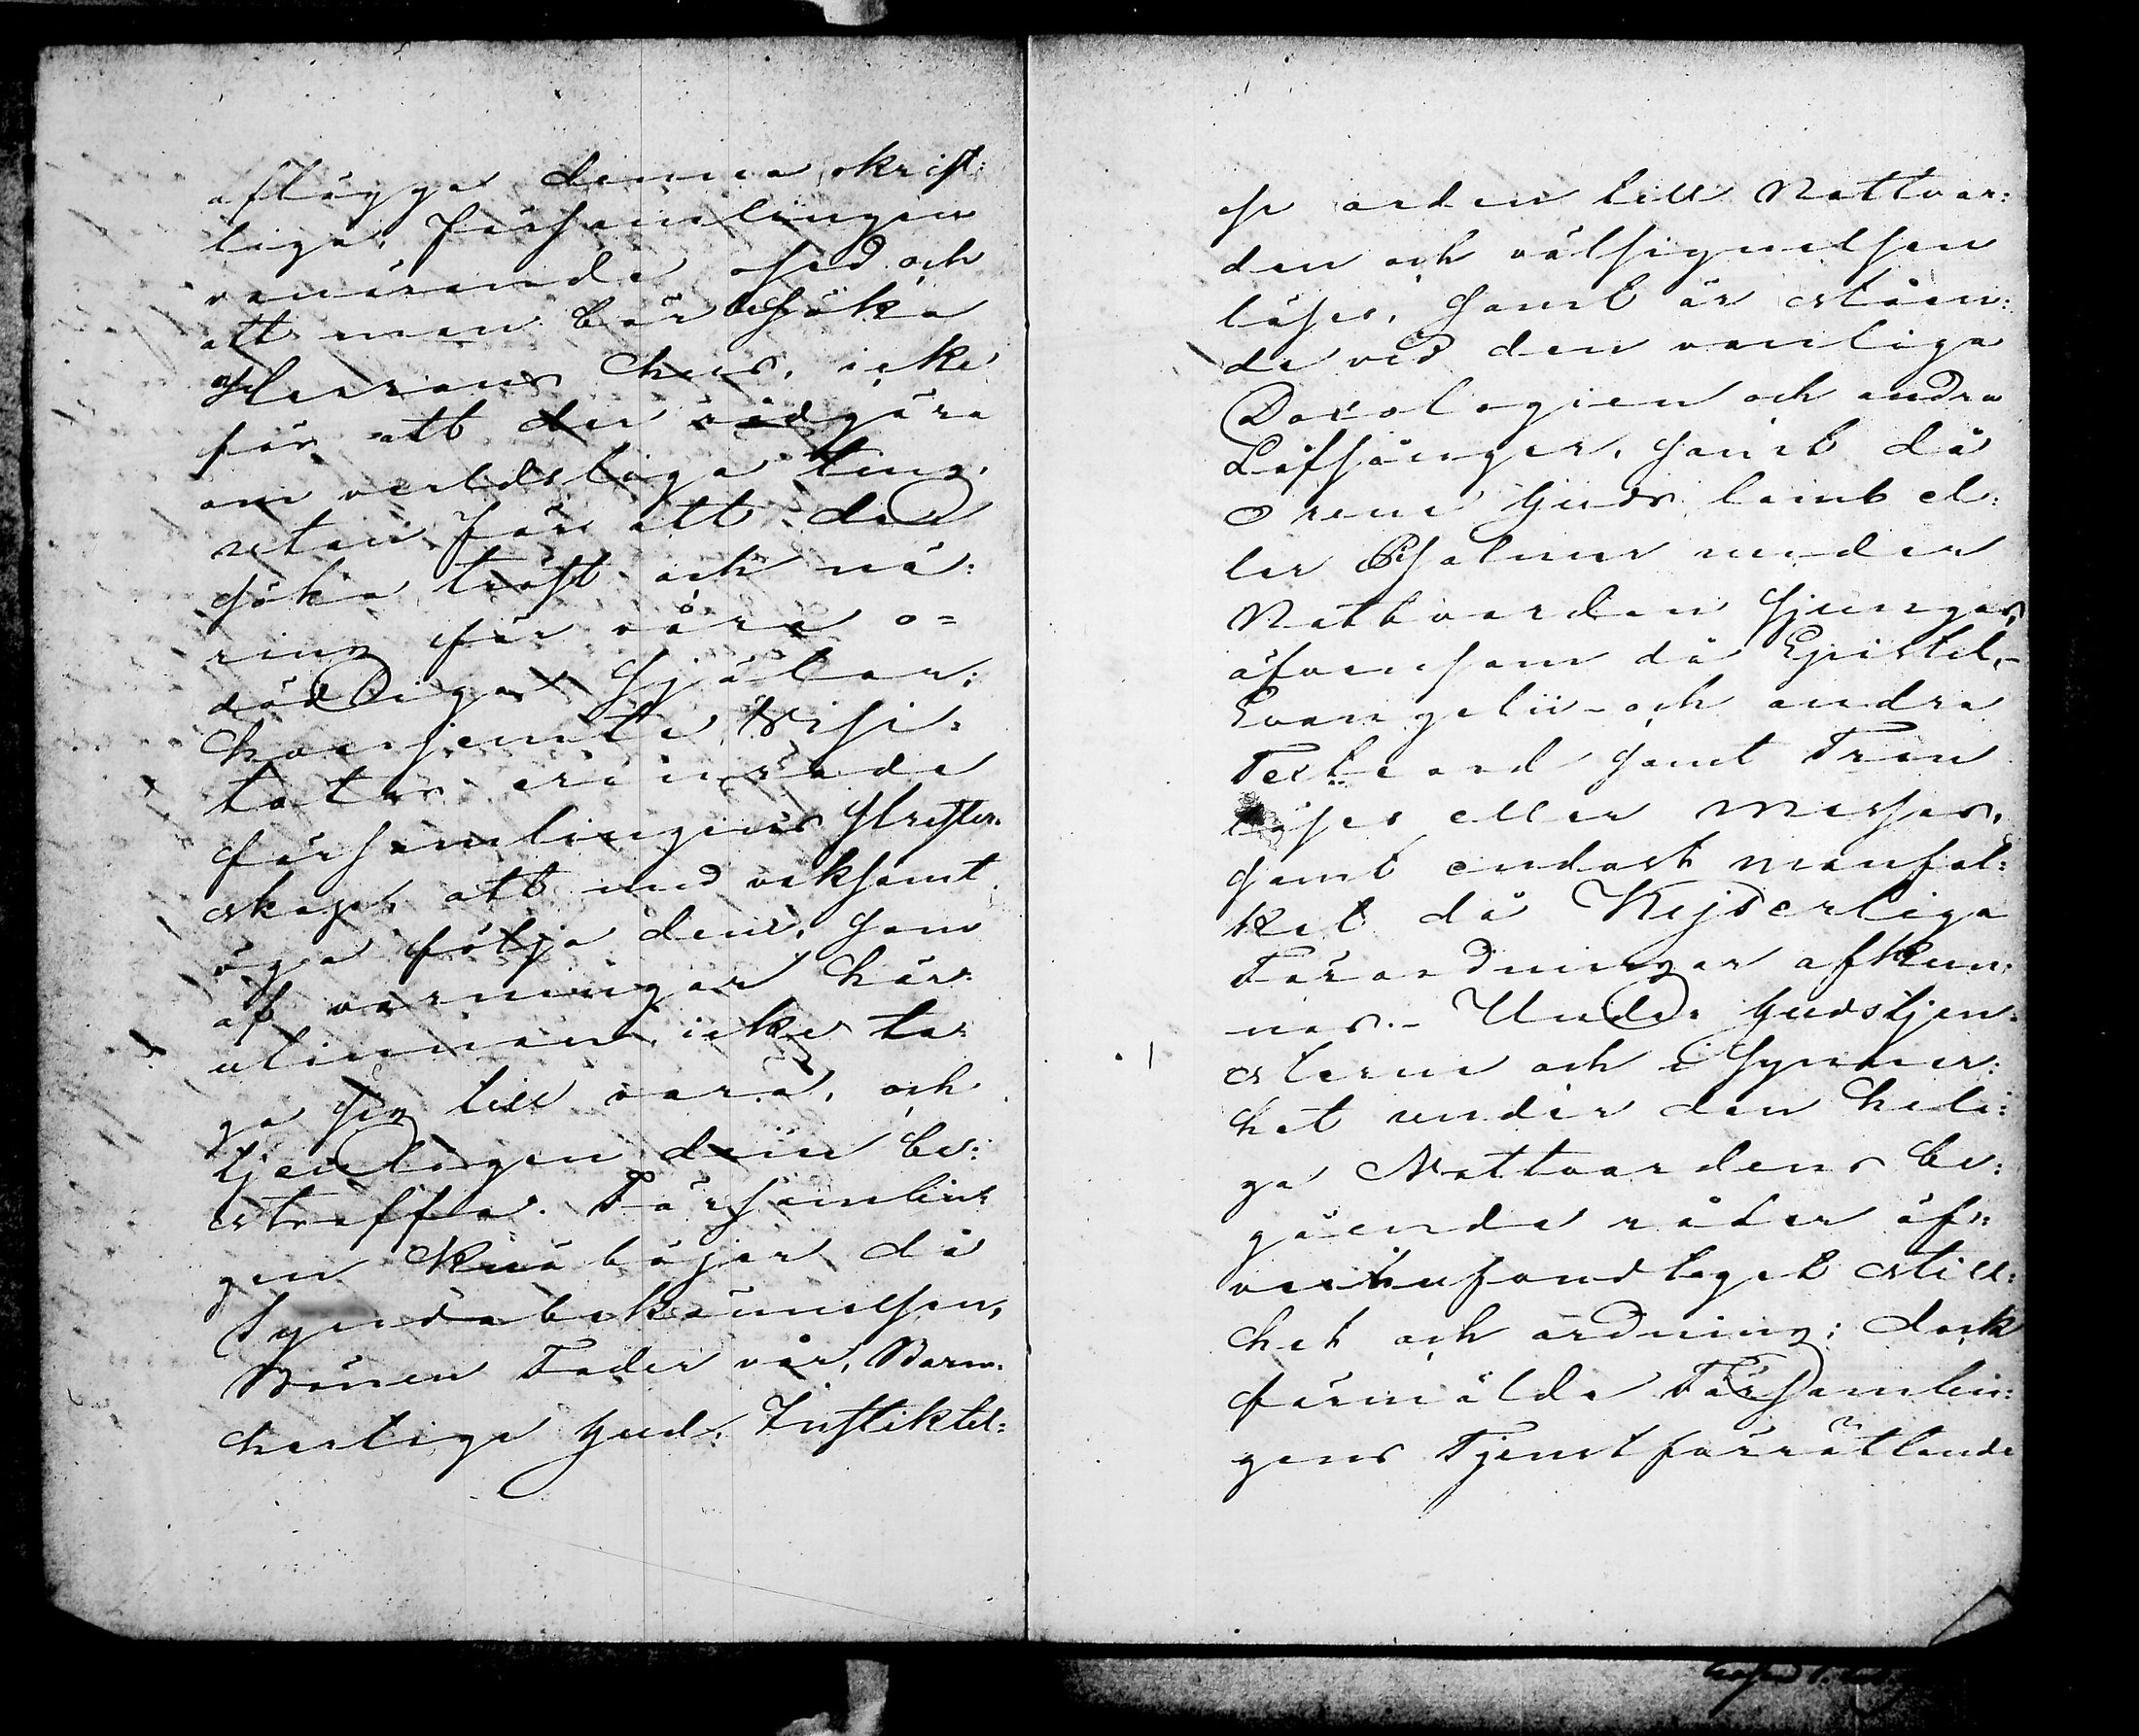 aflägga denna okrist:
liga, Församlingen
vanärande osed, och
att man bör besöka
Herrans hus, icke
för att der rådgöra
om verldsliga ting,
utan för att der
söka tröst och nä:
ring för våra o=
dödliga Själar;
hvarjemte Visi:
tator erinrade
församlingens Prester:
skap, att med vaksamt
öga följa dem, som
af varningar här:
utinnan icke ta:
ga sig till vara, och
tjenligen dem be:
straffa. Församlin:
gen knäböjer då
Syndabekännelsen,
Bönen Fader vår, Barm:
hertige Gud, Instiktel:
se orden till Nattvar:
den och välsignelsen
läses, samt är ståen:
de vid den vanliga
Doxologien och andra
Lofsånger, samt då
O rene Guds lamb el:
ler Psalmer under
Nattvarden sjunges,
äfvensom då Epistel-
Evangelii- och andra
Texte ord samt Tron
läses eller messas,
samt endast manfol:
ket då Kejserliga
Förordningar afkun:
nas.- Under Gudstjen:
sterne och i synner:
het under den heli:
ga Nattvardens be:
gående råder öf:
verhufvudtaget still:
het och ordning; dock
förmälde Församlin:
gens Tjenstförrättande